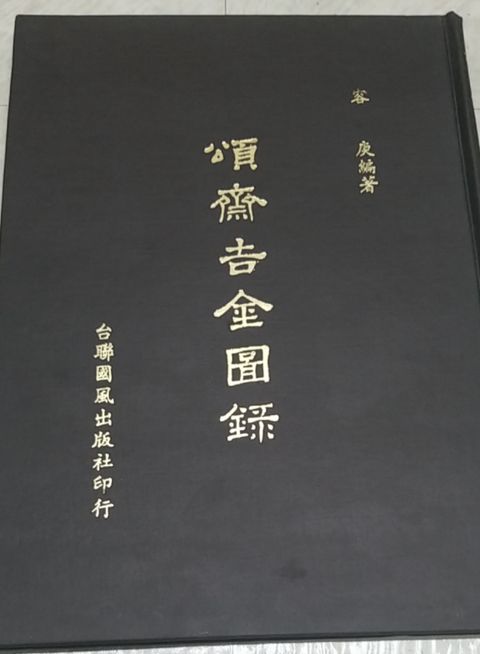 容 庚編著
頌齋吉金圖録
台聯國風出版社印行